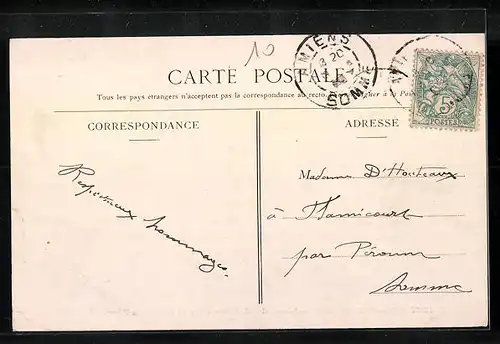 10
AMIENS
SOMME
CARTE POSTALE
Tous les pays étrangers n'acceptent pas la correspondance au recto
CORRESPONDANCE
ADRESSE
5
POSTES
Respectueux hommages
Madame D'Hauteaux
à Flamicourt
par Péronne
Somme